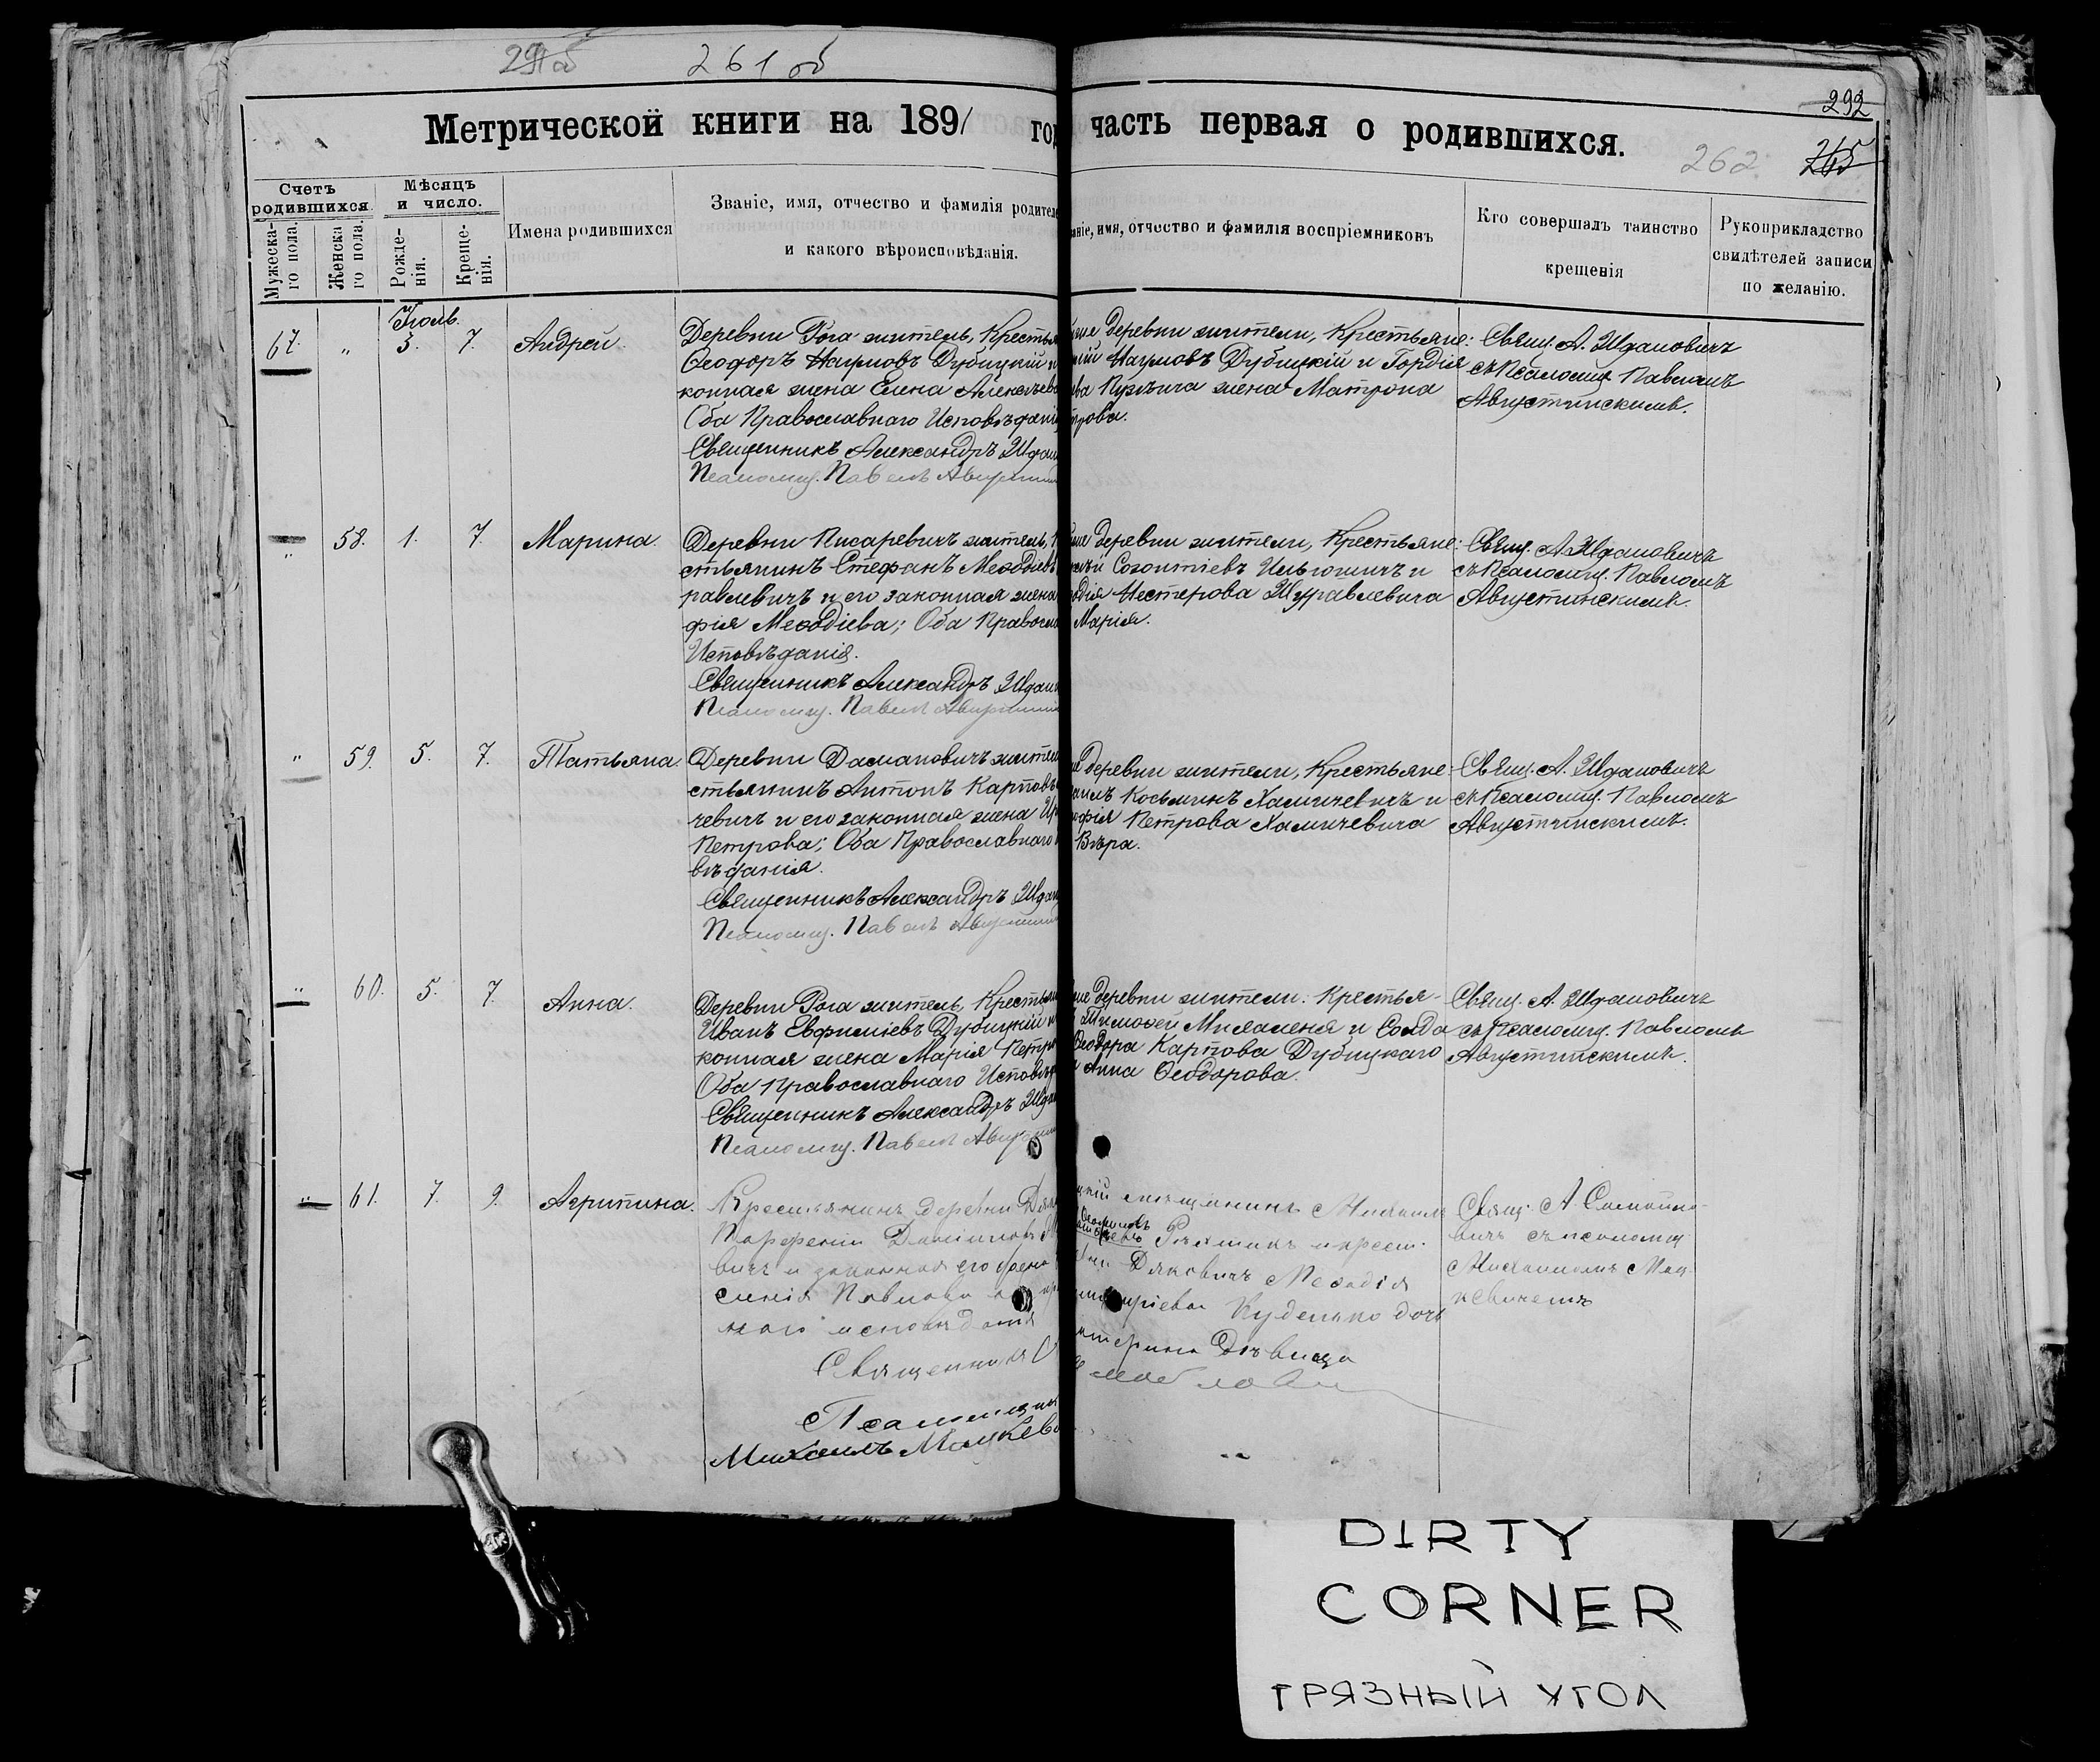 261 об
292
Метрической книги на 1891 го
часть первая о родившихся.
262 265
Счетъ родившихся.
Мужеска-го пола.
Женска го пола.
Мѣсяцъ и число.
Рожде-нія.
Креще-нія.
Имена родившихся
Званіе, имя, отчество и фамилія родител
и какого вѣроисповѣданія.
аніе, имя, отчество и фамилія воспріемниковъ
Кто совершалъ таинство
крещенія
Рукоприкладство
свидѣтелей записи
по желанію.
Іюль.
67. " 3. 7. Андрей.
Деревни Рога житель, Крестья
Ѳеодоръ Наумовъ Дубицкій и
конная жена Елена Алексѣева
Оба Православнаго Исповѣдані
Священникъ Александръ Ждан
Псаломщ. Павелъ Августин
деревни жители, Крестьяне:
Наумовъ Дубицкій и Гордія
жена Матрона
трова.
Свящ. А. Ждановичъ
съ Псаломщ. Павломъ
Августинскимъ.
" 58. 1. 7. Марина.
Деревни Писаревичъ житель, К
стьянинъ Стефанъ Меѳодіевъ
равлевичъ и его законная жена
фія Меѳодіева; Оба Правосла
Исповѣданія.
Священникъ Александръ Ждан
Псаломщ. Павелъ Августин
деревни жители, Крестьяне:
и
Нестерова Журавлевича
Марія.
Свящ. А. Ждановичъ
съ Псаломщ. Павломъ
Августинскимъ.
" 59. 5. 7. Татьяна.
Деревни Дамановичъ жител
стьянинъ Антонъ Карповъ
чевичъ и его законная жена Ир
Петрова; Оба Православнаго
вѣданія.
Священникъ Александръ Ждан
Псаломщ. Павелъ Августин
деревни жители, Крестьяне:
Косьминъ Халичевичъ и
офія Петрова Халичевича
Вѣра.
Свящ. А. Ждановичъ
съ Псаломщ. Павломъ
Августинскимъ.
" 60. 5. 7. Анна.
Деревни Рога житель, Крестьян
Иванъ Евфиміевъ Дубицкій и
конная жена Марія Петро
Оба Православнаго Исповѣд
Священникъ Александръ Ждан
Псаломщ. Павелъ Августин
деревни жители: Крестья-
Тимоѳей и Солда
Ѳеодора Карпова Дубицкаго
Анна Ѳеодорова.
Свящ. А. Ждановичъ
съ Псаломщ. Павломъ
Августинскимъ.
" 61. 7. 9. Агрипина.
Крестьянинъ деревни Дя
Парфеній Даніиловъ
вичъ и законная его жена
Павлова
наго исповѣданія
Священникъ С
Псаломщик
Михаилъ Мацкеви
мѣщанинъ Михаилъ
и крест.
Дяковичъ Меѳодія
Куденко дочь
атерина Дѣвица
Свящ. А. Самойло-
вичъ съ псаломщ
Михаиломъ Мац-
кевичемъ
DIRTY
CORNER
ГРЯЗНЫЙ УГОЛ